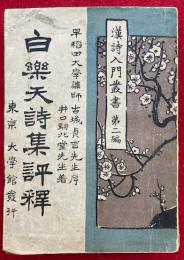 漢詩入門叢書 第二編
早稲田大學講師 古城貞吉先生序
井口駒北堂先生著
白樂天詩集評釋
東京 大學館發行